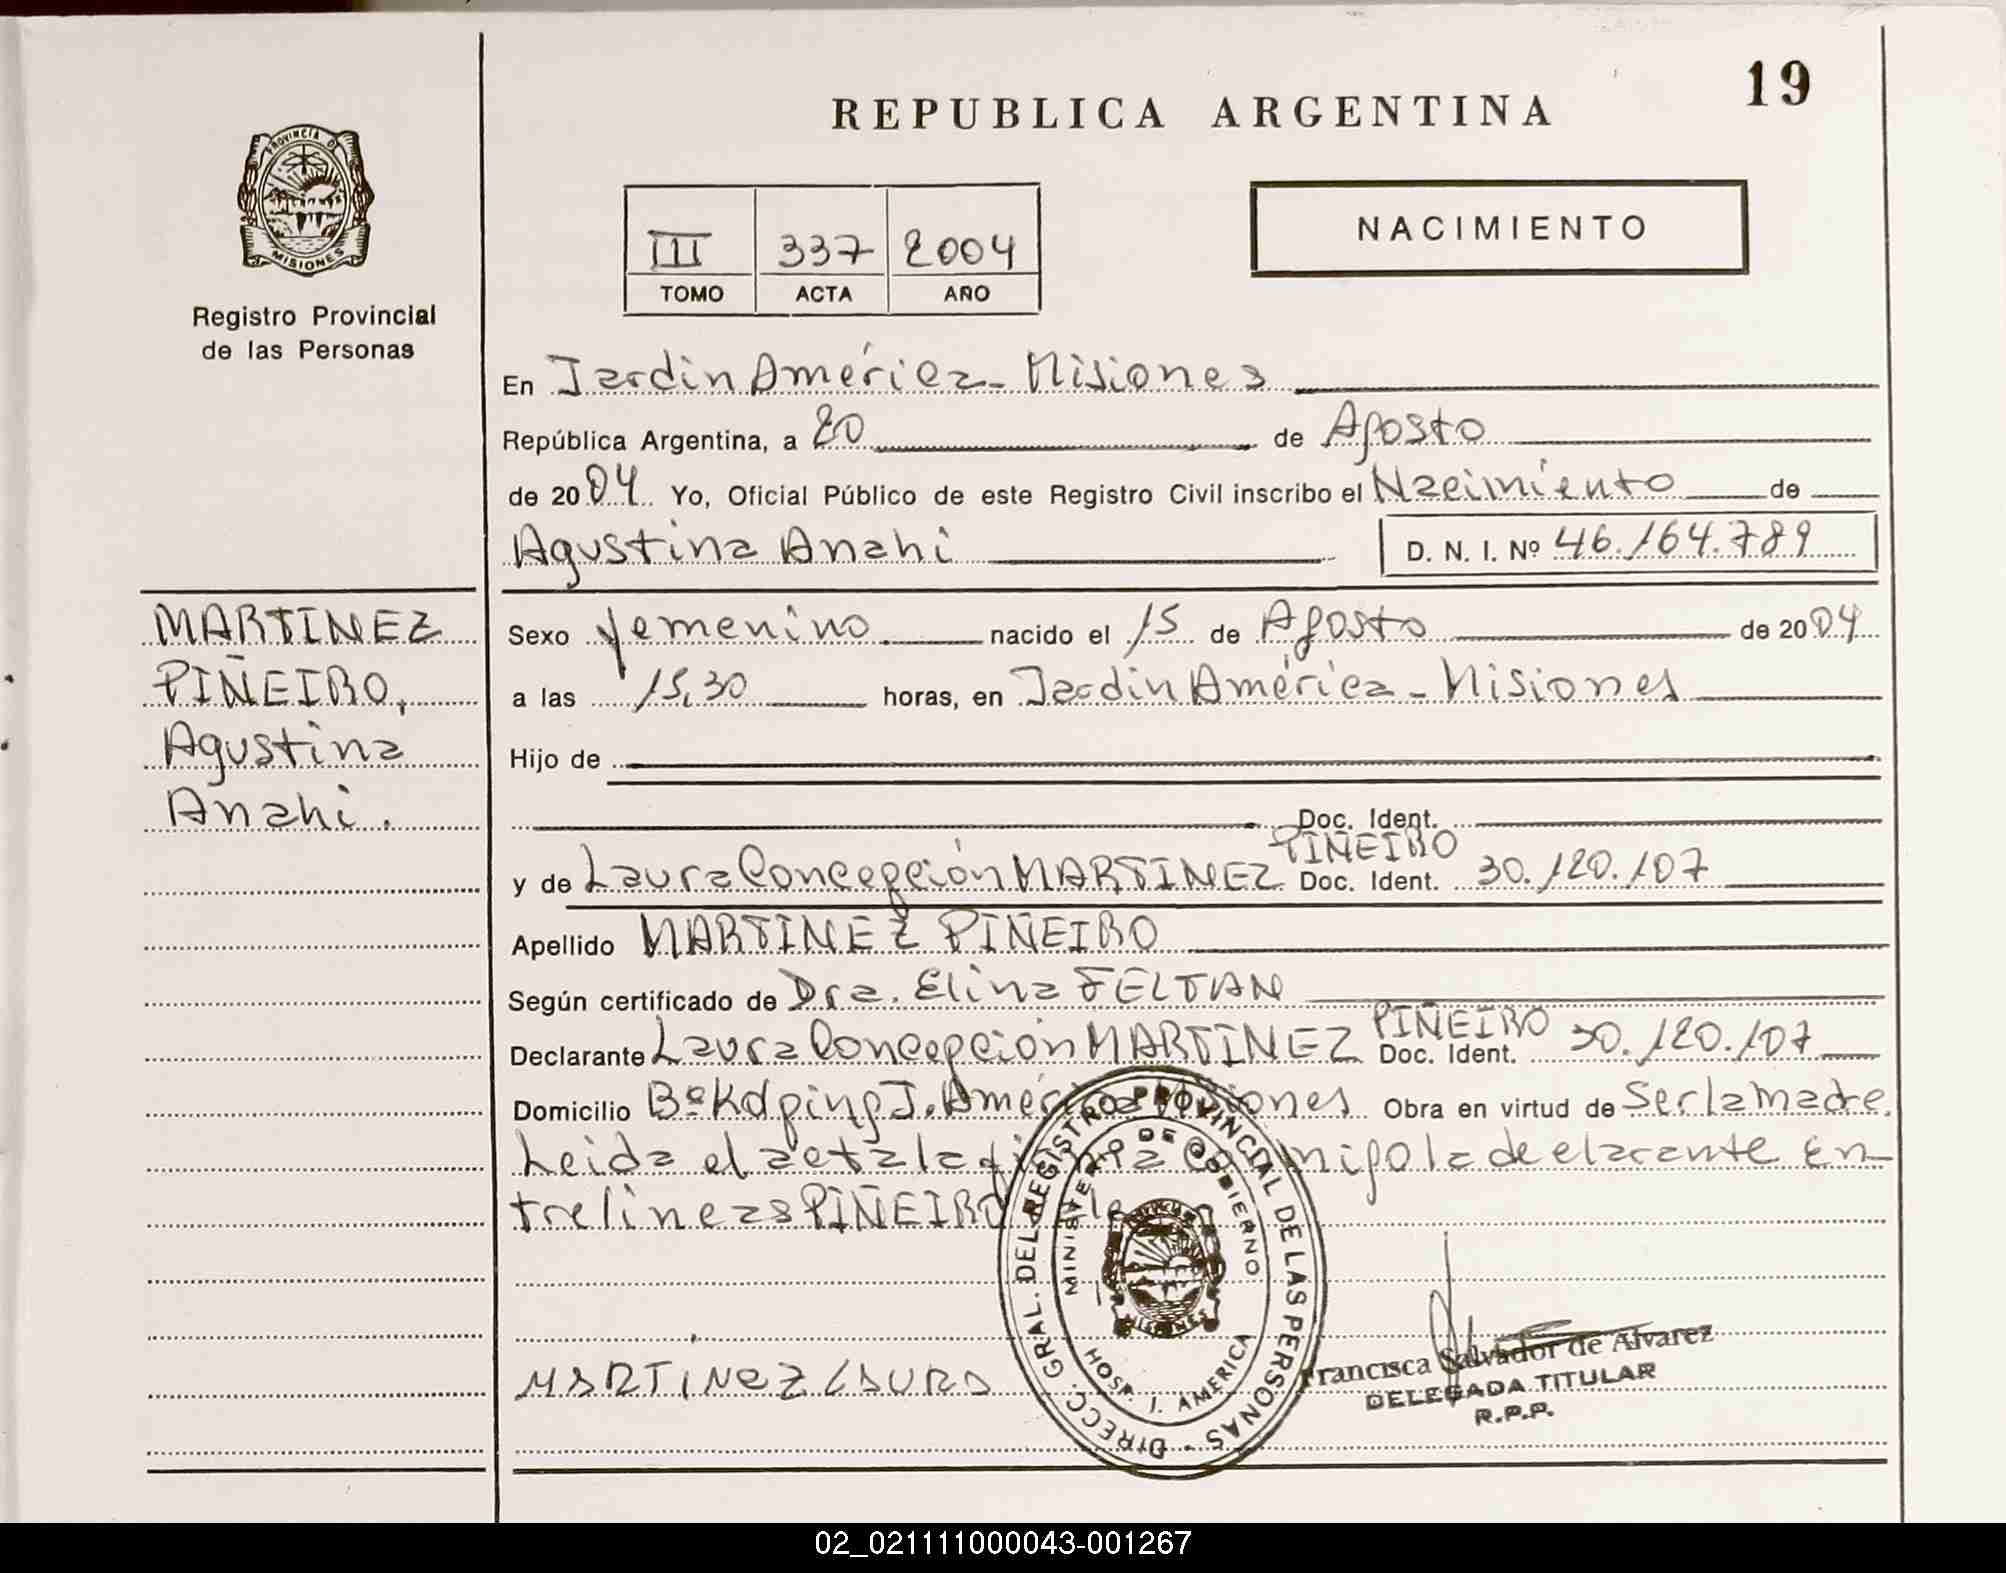 19
REPUBLICA ARGENTINA
PROVINCIA D
MISIONES
Registro Provincial
de las Personas
NACIMIENTO
III 337 2004
TOMO ACTA AÑO
En Jardin América - Misiones
República Argentina, a 20 de Agosto
de 2004 Yo, Oficial Público de este Registro Civil inscribo el Nacimiento de
Agustina Anahi D. N. I. Nº 46.164.789
MARTINEZ
PIÑEIRO,
Agustina
Anahi.
Sexo Femenino nacido el 15 de Agosto de 2004
a las 15,30 horas, en Jardin América - Misiones
Hijo de
Doc. Ident.
PIÑEIRO
y de Laura Concepción MARTINEZ Doc. Ident. 30.120.107
Apellido MARTINEZ PIÑEIRO
Según certificado de Dra. Elina FELTAN
PIÑEIRO
Declarante Laura Concepción MARTINEZ Doc. Ident. 30.120.107
Domicilio Bº Kolping J. América Misiones Obra en virtud de Ser la madre.
Leida el acta la firma conmigo la declarante En-
trelineas PIÑEIRO Vale
MARTINEZ LAURA
DIRECC. GRAL. DEL REGISTRO PROVINCIAL DE LAS PERSONAS -
MINISTERIO DE GOBIERNO
MISIONES
HOSP. J. AMERICA
Francisca Salvador de Alvarez
DELEGADA TITULAR
R.P.P.
02_021111000043-001267